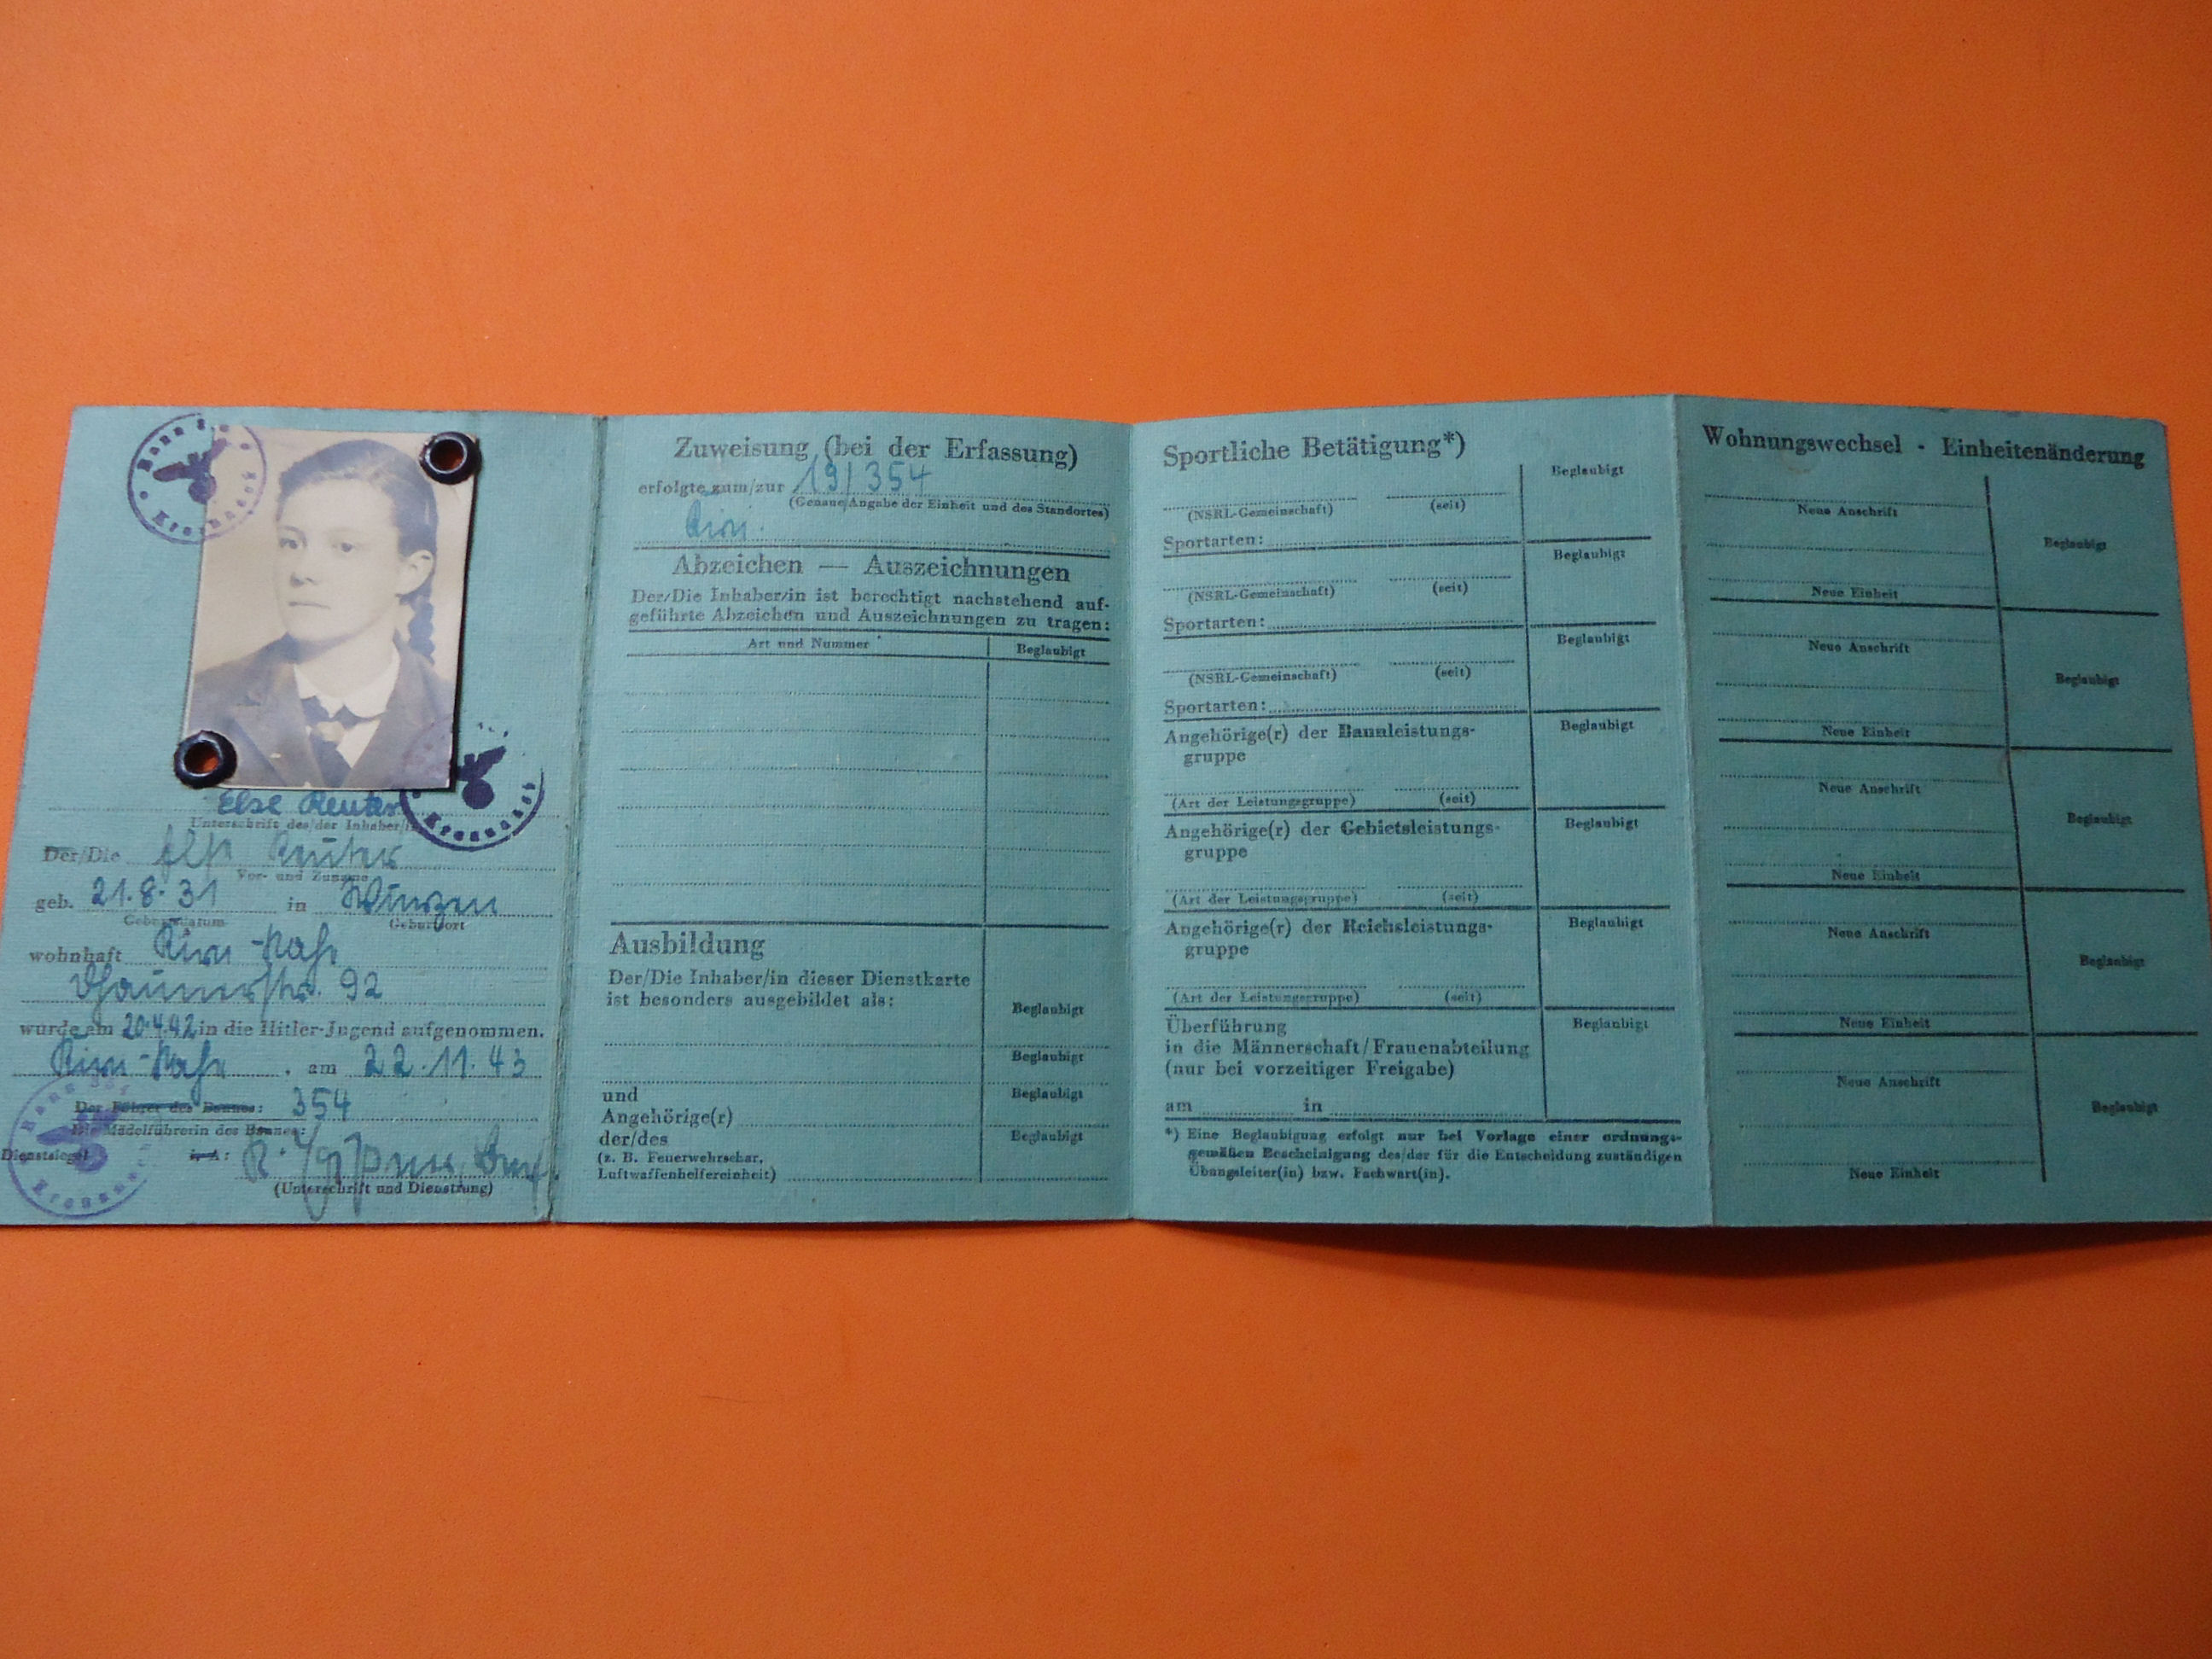 Else Reuter
Unterschrift des/der Inhaber/in
Der/Die Else Reuter
Vor- und Zuname
geb. 21.8.31 in
Geburtsdatum Geburtsort
wohnhaft Kirn-Nahe
92
wurde am 20.4.42 in die Hitler-Jugend aufgenommen.
Kirn-Nahe, am 22.11.43
Der Führer des Bannes: 354
Die Mädelführerin des Bannes:
Dienstsiegel i. A:
(Unterschrift und Dienstrang)
Zuweisung (bei der Erfassung)
erfolgte zum/zur 19/354
(Genaue Angabe der Einheit und des Standortes)
Kirn.
Abzeichen — Auszeichnungen
Der/Die Inhaber/in ist berechtigt nachstehend auf-
geführte Abzeichen und Auszeichnungen zu tragen:
Art und Nummer Beglaubigt
Ausbildung
Der/Die Inhaber/in dieser Dienstkarte
ist besonders ausgebildet als:
Beglaubigt
Beglaubigt
und Beglaubigt
Angehörige(r)
der/des Beglaubigt
(z. B. Feuerwehrschar,
Luftwaffenhelfereinheit)
Sportliche Betätigung*)
Beglaubigt
(NSRL-Gemeinschaft) (seit)
Sportarten:
Beglaubigt
(NSRL-Gemeinschaft) (seit)
Sportarten:
Beglaubigt
(NSRL-Gemeinschaft) (seit)
Sportarten:
Angehörige(r) der Bannleistungs- Beglaubigt
gruppe
(Art der Leistungsgruppe) (seit)
Angehörige(r) der Gebietsleistungs- Beglaubigt
gruppe
(Art der Leistungsgruppe) (seit)
Angehörige(r) der Reichsleistungs- Beglaubigt
gruppe
(Art der Leistungsgruppe) (seit)
Überführung Beglaubigt
in die Männerschaft/Frauenabteilung
(nur bei vorzeitiger Freigabe)
am in
*) Eine Beglaubigung erfolgt nur bei Vorlage einer ordnungs-
gemäßen Bescheinigung des/der für die Entscheidung zuständigen
Übungsleiter(in) bzw. Fachwart(in).
Wohnungswechsel - Einheitenänderung
Neue Anschrift
Beglaubigt
Neue Einheit
Neue Anschrift
Beglaubigt
Neue Einheit
Neue Anschrift
Beglaubigt
Neue Einheit
Neue Anschrift
Beglaubigt
Neue Einheit
Neue Anschrift
Beglaubigt
Neue Einheit